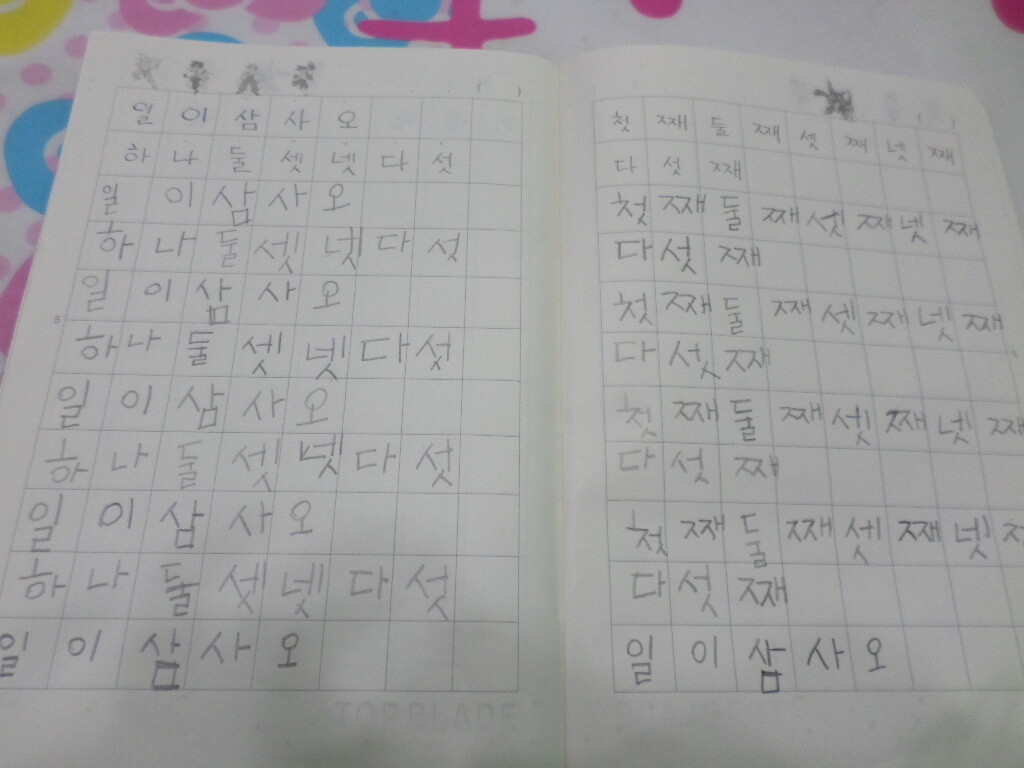 일 이 삼 사 오
하 나 둘 셋 넷 다 섯
일 이 삼 사 오
하 나 둘 셋 넷 다 섯
일 이 삼 사 오
하 나 둘 셋 넷 다 섯
일 이 삼 사 오
하 나 둘 셋 넷 다 섯
일 이 삼 사 오
하 나 둘 셋 넷 다 섯
일 이 삼 사 오
첫 째 둘 째 셋 째 넷 째
다 섯 째
첫 째 둘 째 셋 째 넷 째
다 섯 째
첫 째 둘 째 셋 째 넷 째
다 섯 째
첫 째 둘 째 셋 째 넷 째
다 섯 째
첫 째 둘 째 셋 째 넷
다 섯 째
일 이 삼 사 오